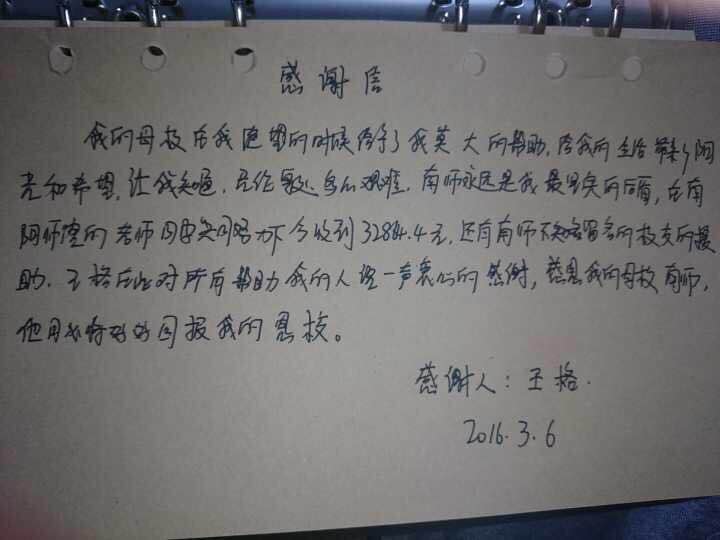 感谢信
我的母校在我绝望的时候给予了我莫大的帮助,给我的生活带来了阳
光和希望,让我知道,无论多么艰难,南师永远是我最坚实的后盾,在南
阳师院的老师同学共同努力下今收到32804.4元,还有南师不知名留名的校友的援
助。王格在此对所有帮助我的人说一声衷心的感谢,感恩我的母校南师,
他日我将好好回报我的恩校。
感谢人:王格.
2016.3.6